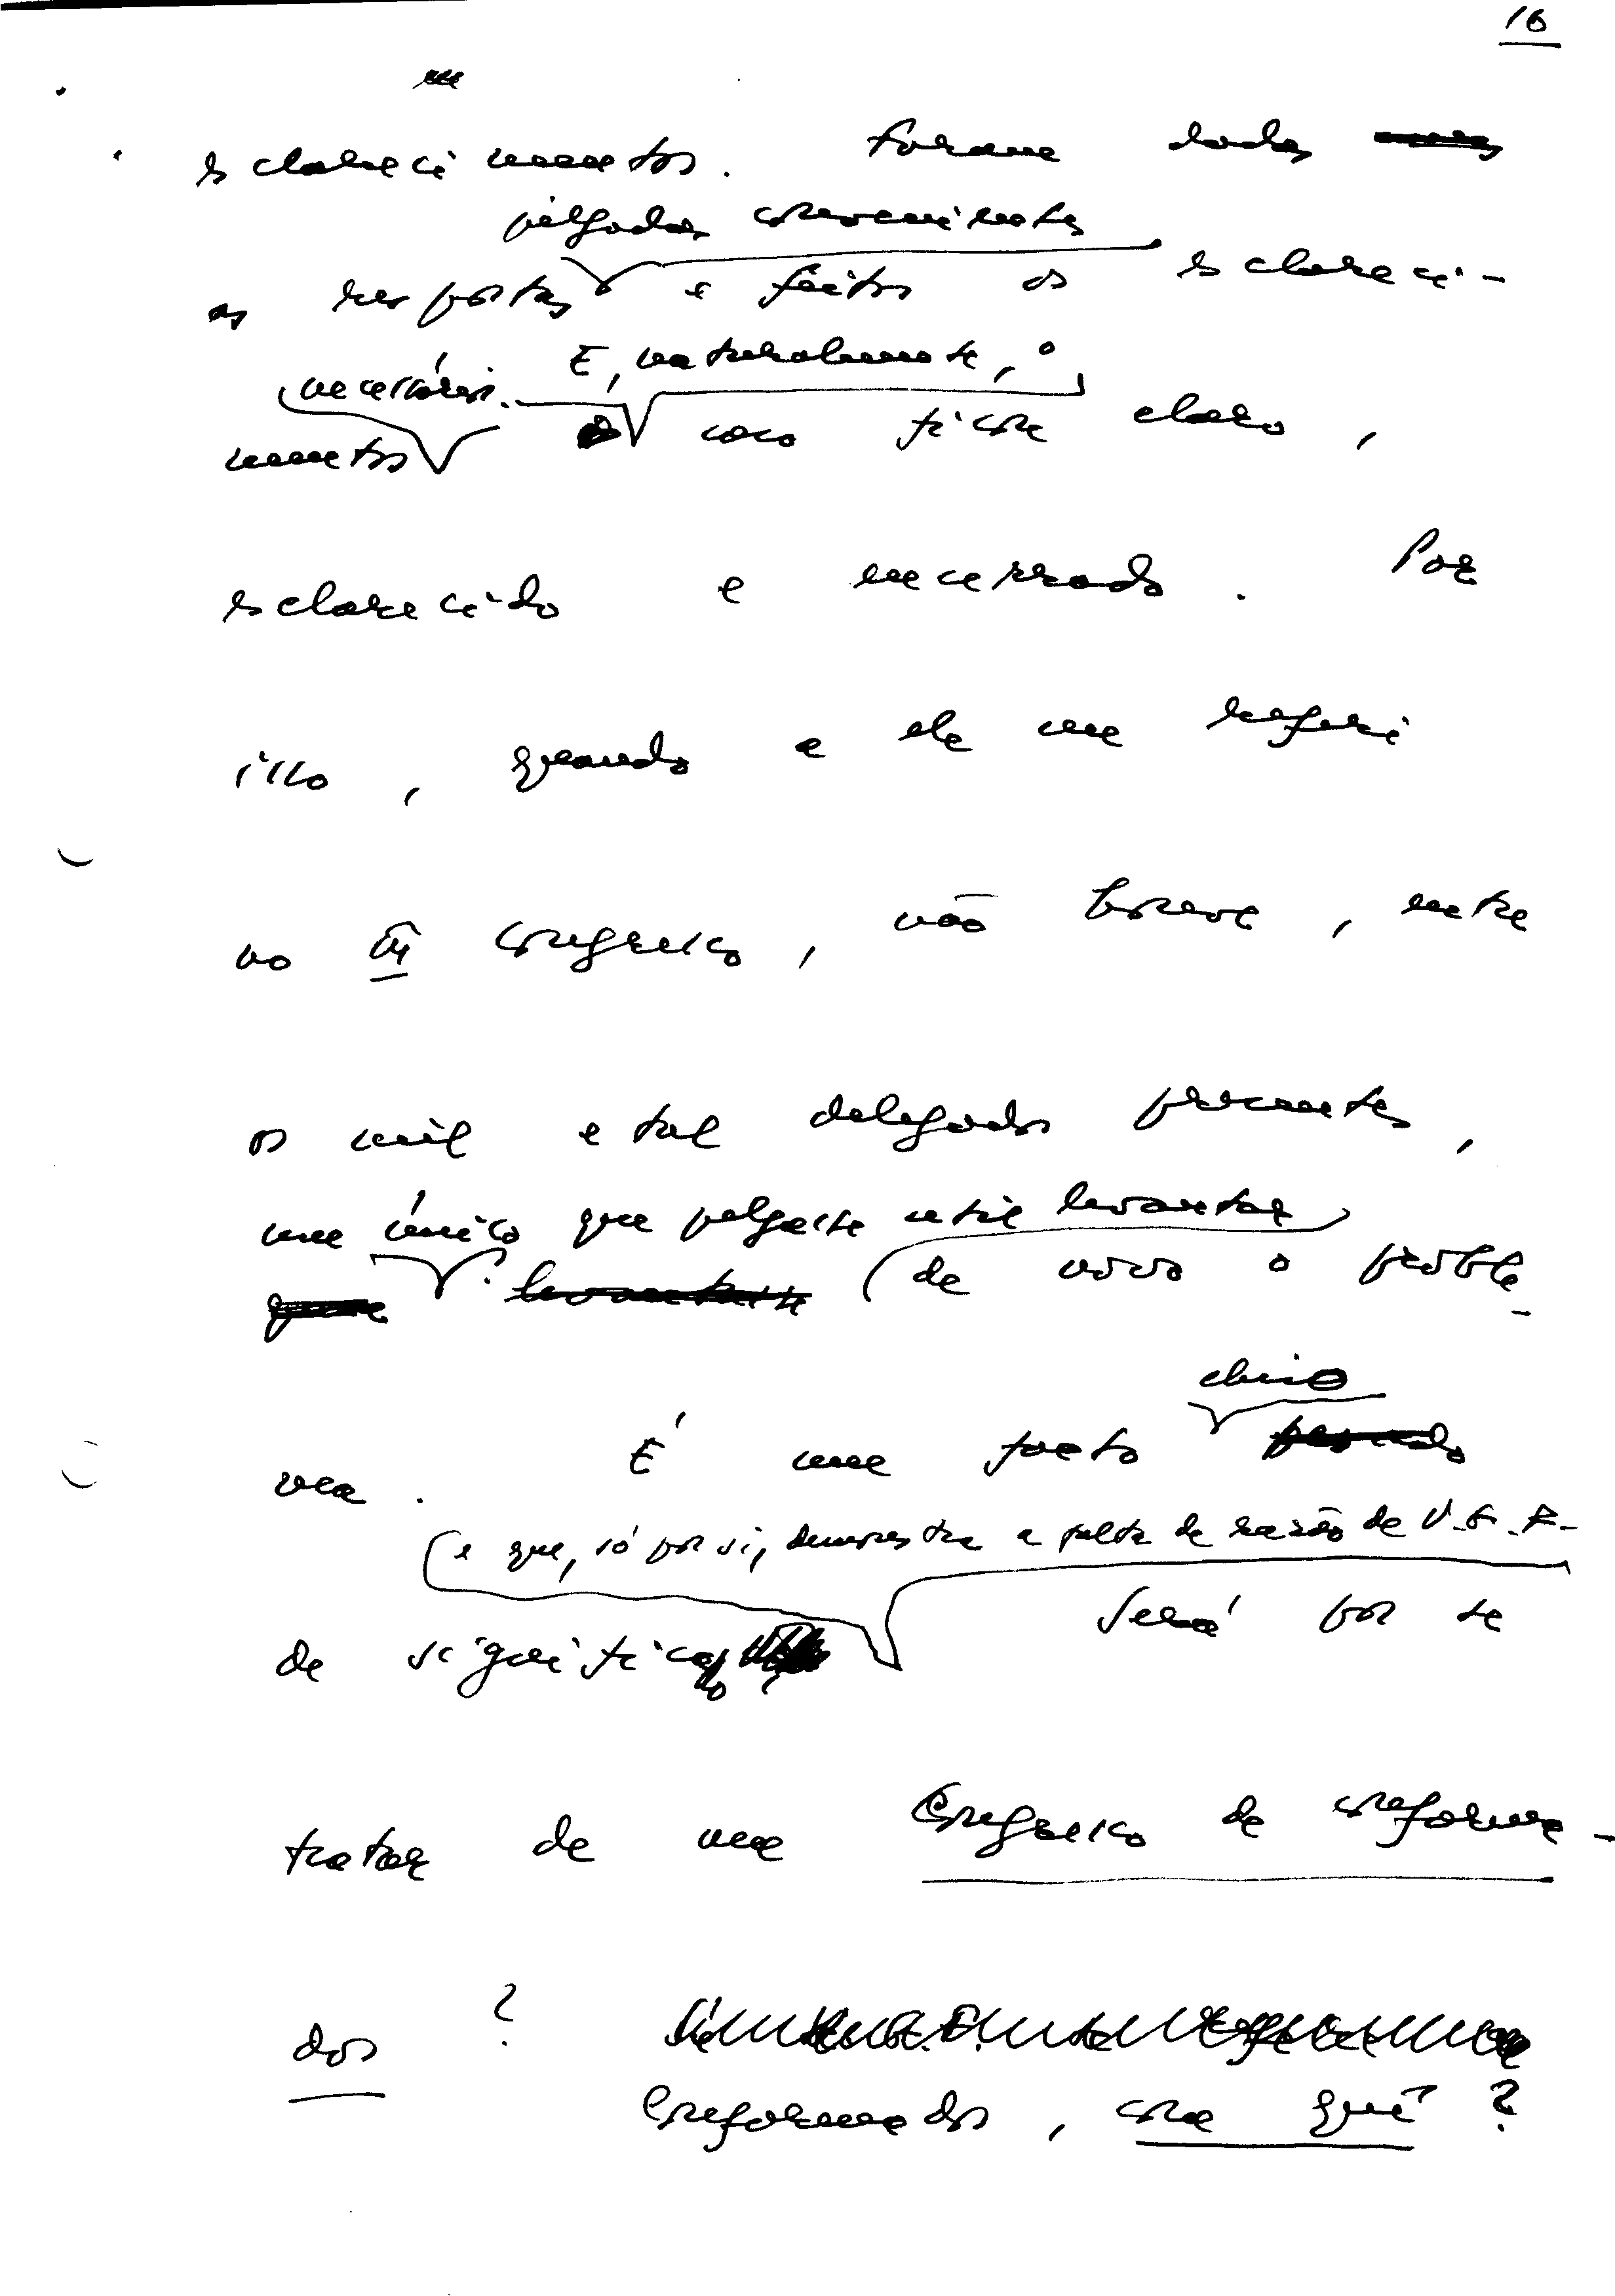 16
esclarecimentos. Foram dadas
julgadas convenientes
as respostas e feitos os esclareci-
necessários. E, naturalmente, o
mentos caso ficou claro,
esclarecido e encerrado. Por
isso, quando a ele me referi
no congresso, não houve, entre
os mil e tal delegados presentes,
um único que julgasse útil levantar
de novo o proble-
ma. É um facto cheio
e que, só por si, demonstra a falta de razão de V.G.R.
de significação. Será por se
tratar de um Congresso de conforma-
dos?
Conformados, com quê?